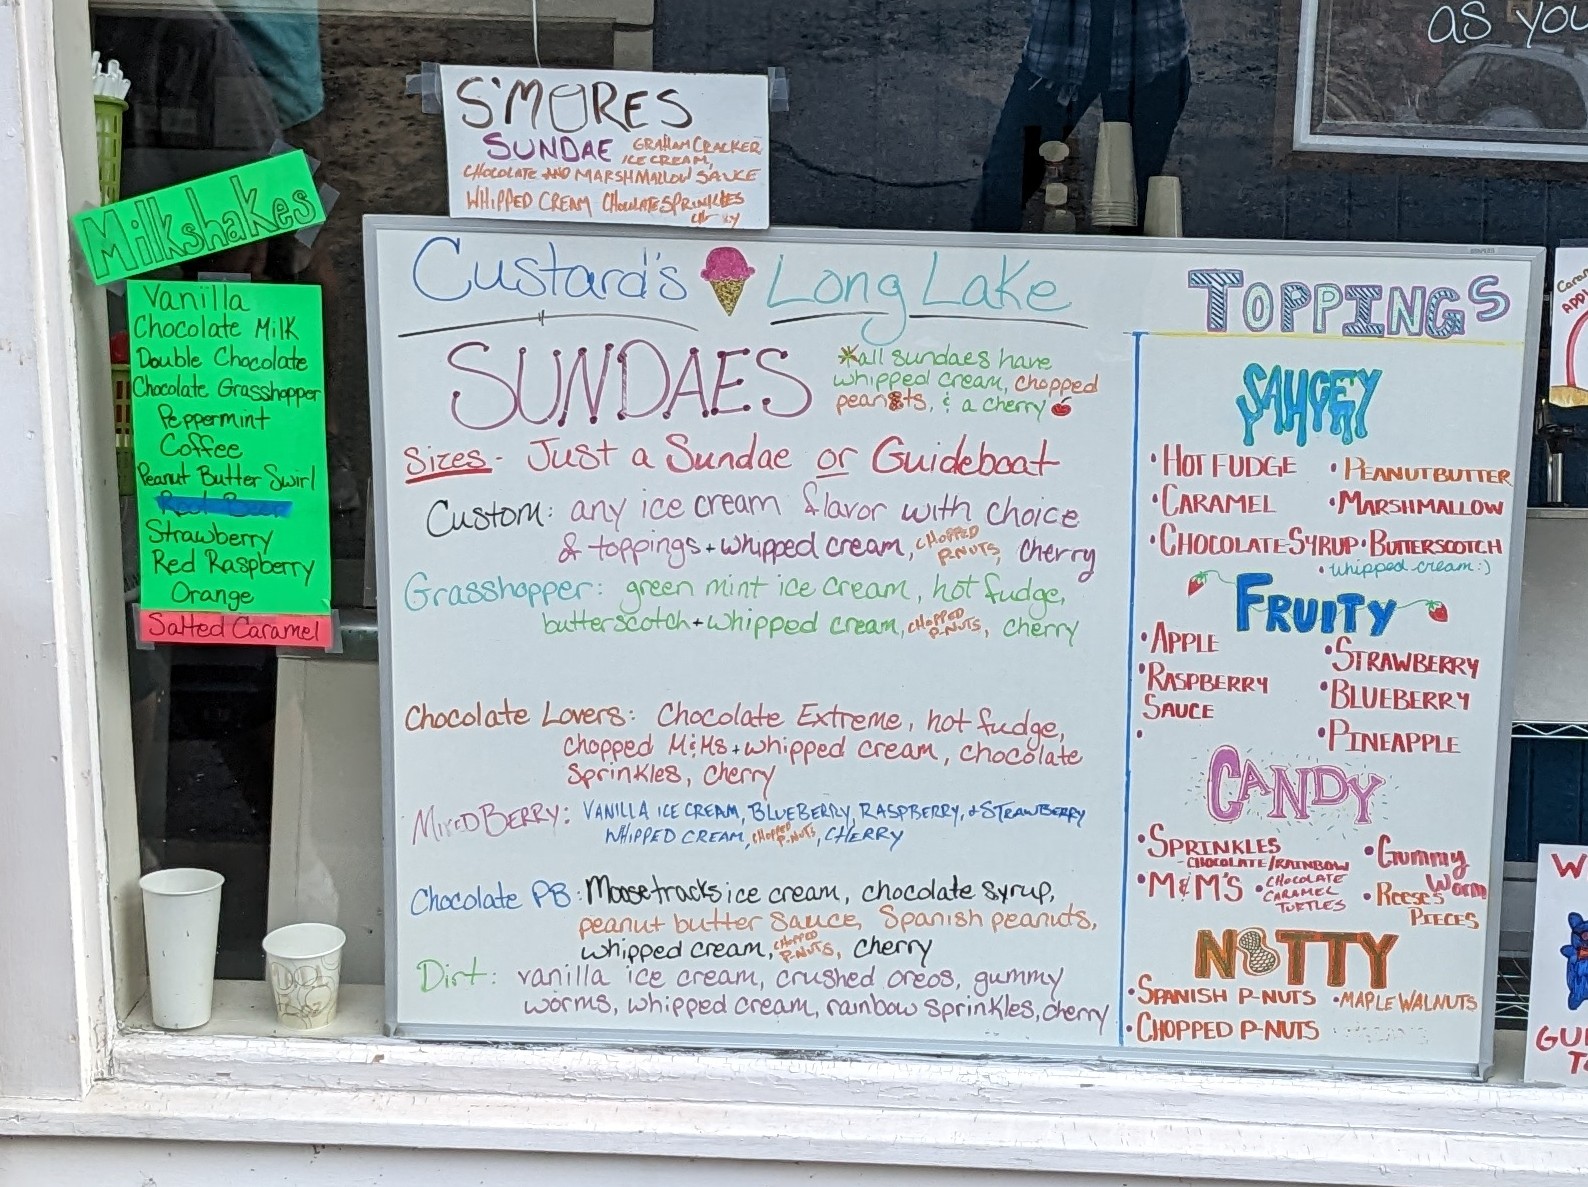 as you
S'MORES
SUNDAE GRAHAM CRACKER
ICE CREAM,
CHOCOLATE AND MARSHMALLOW SAUCE
WHIPPED CREAM CHOCOLATE SPRINKLES
Milkshakes
Vanilla
Chocolate Milk
Double Chocolate
Chocolate Grasshopper
Peppermint
Coffee
Peanut Butter Swirl
Root Beer
Strawberry
Red Raspberry
Orange
Salted Caramel
Custard's Long Lake
SUNDAES
*all sundaes have
whipped cream, chopped
peanuts, & a cherry
Sizes - Just a Sundae or Guideboat
Custom: any ice cream flavor with choice
& toppings + whipped cream, CHOPPED P-NUTS, cherry
Grasshopper: green mint ice cream, hot fudge,
butterscotch + whipped cream, CHOPPED P-NUTS, cherry
Chocolate Lovers: Chocolate Extreme, hot fudge,
chopped M&Ms + whipped cream, chocolate
sprinkles, cherry
MIXED BERRY: VANILLA ICE CREAM, BLUEBERRY, RASPBERRY, + STRAWBERRY
WHIPPED CREAM, CHOPPED P-NUTS, CHERRY
Chocolate PB: Moosetracks ice cream, chocolate syrup,
peanut butter sauce, Spanish peanuts,
whipped cream, CHOPPED P-NUTS, cherry
Dirt: vanilla ice cream, crushed oreos, gummy
worms, whipped cream, rainbow sprinkles, cherry
TOPPINGS
SAUCEY
• HOT FUDGE • PEANUT BUTTER
• CARAMEL • MARSHMALLOW
• CHOCOLATE SYRUP • BUTTERSCOTCH
• whipped cream :)
FRUITY
• APPLE • STRAWBERRY
• RASPBERRY SAUCE • BLUEBERRY
• PINEAPPLE
CANDY
• SPRINKLES
- CHOCOLATE/RAINBOW
• Gummy Worm
• M&M'S • CHOCOLATE CARAMEL TURTLES
• REESE'S PIECES
NUTTY
• SPANISH P-NUTS • MAPLE WALNUTS
• CHOPPED P-NUTS